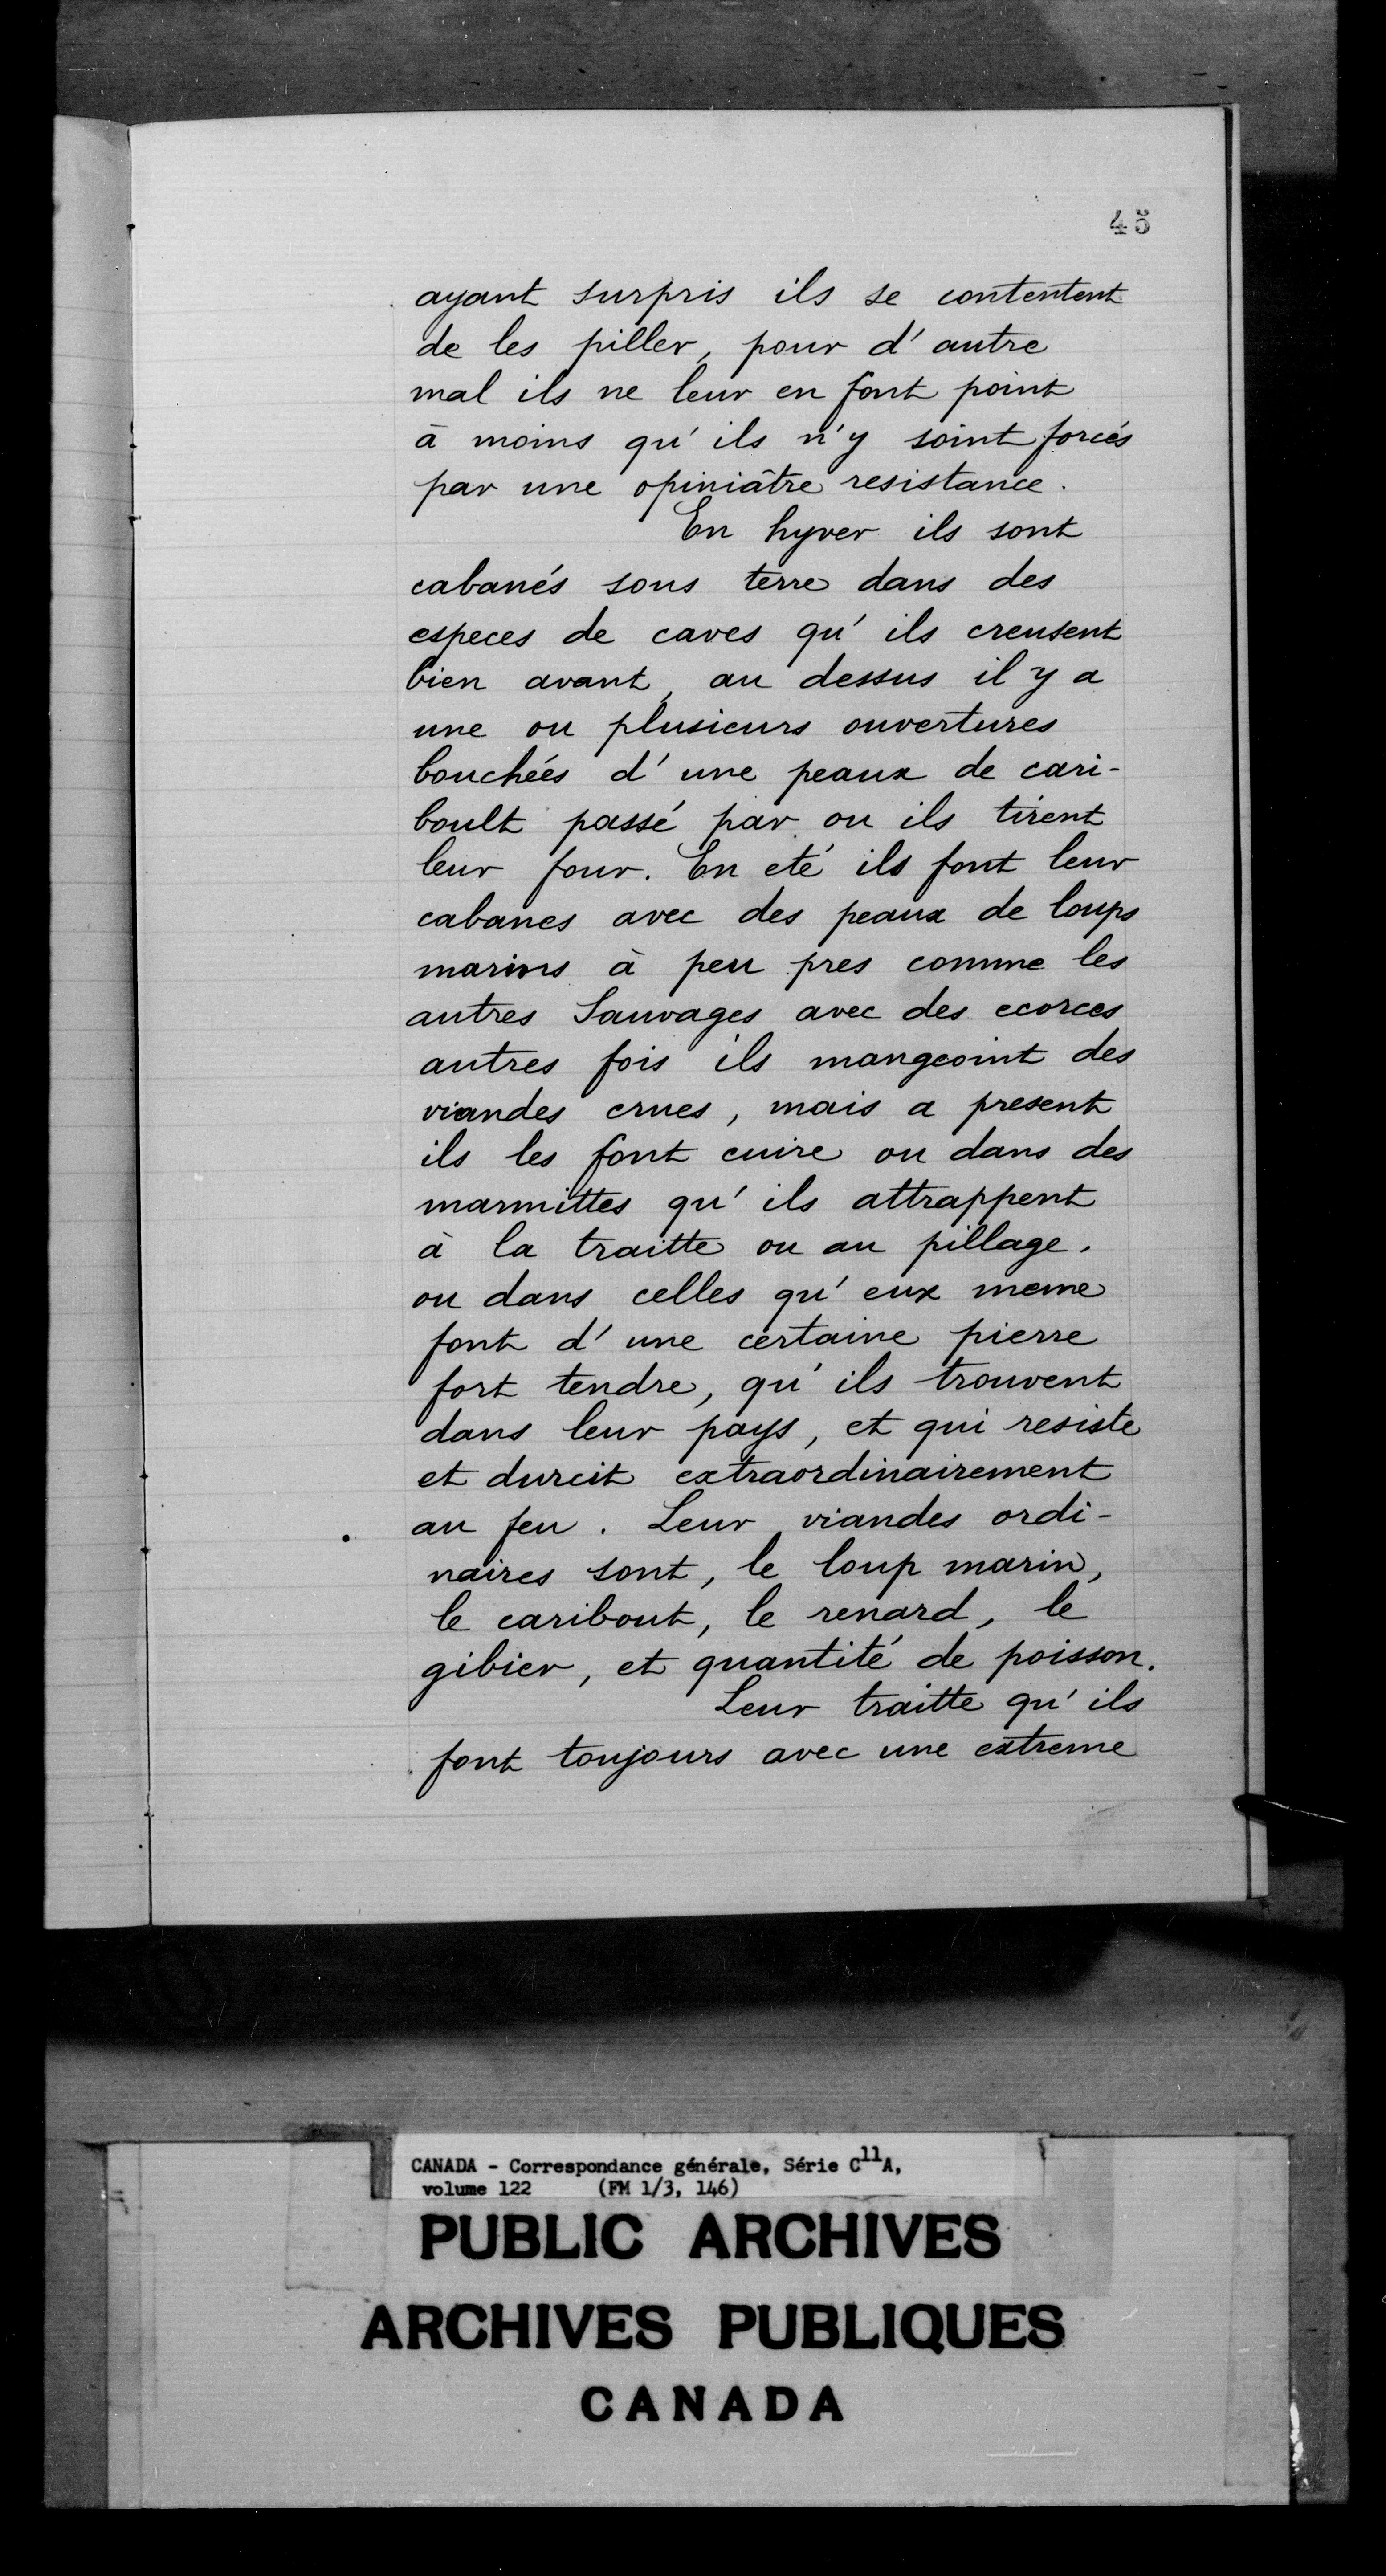 45
ayant surpris ils se contentent
de les piller, pour d'autre
mal ils ne leur en font point
à moins qu'ils n'y soint forcés
par une opiniâtre resistance.
En hyver ils sont
cabanés sous terre dans des
especes de caves qu'ils creusent
bien avant, au dessus il y a
une ou plusieurs ouvertures
bouchées d'une peaux de cari-
boult passé par ou ils tirent
leur four. En eté ils font leur
cabanes avec des peaux de loups
marins à peu pres comme les
autres Sauvages avec des ecorces
autres fois ils mangeoint des
viandes crues, mais a present
ils les font cuire ou dans des
marmittes qu'ils attrappent
à la traitte ou au pillage.
ou dans celles qu'eux meme
font d'une certaine pierre
fort tendre, qu'ils trouvent
dans leur pays, et qui resiste
et durcit extraordinairement
au feu. Leur viandes ordi-
naires sont, le loup marin,
le caribout, le renard, le
gibier, et quantité de poisson.
Leur traitte qu'ils
font toujours avec une extreme
CANADA - Correspondance générale, Série C11A,
volume 122 (FM 1/3, 146)
PUBLIC ARCHIVES
ARCHIVES PUBLIQUES
CANADA